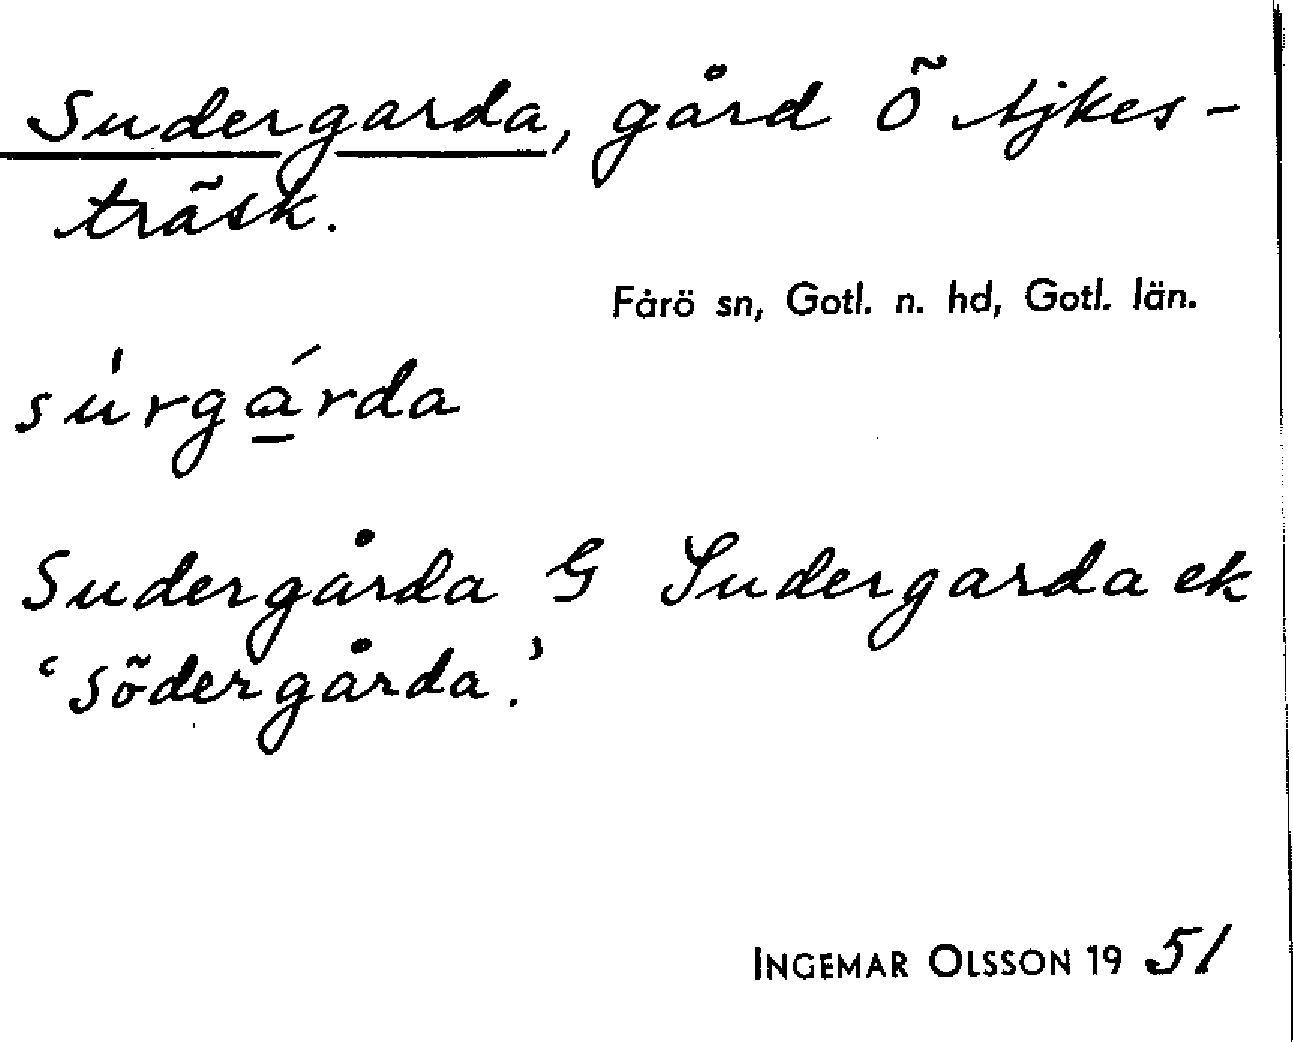 Sudergarda, gård Ö Ajkes-
träsk.
Fårö sn, Gotl. n. hd, Gotl. län.
su̍rgá̱rda
Sudergårda G Sudergarda ek
‘Södergårda.’
INGEMAR OLSSON 19 51